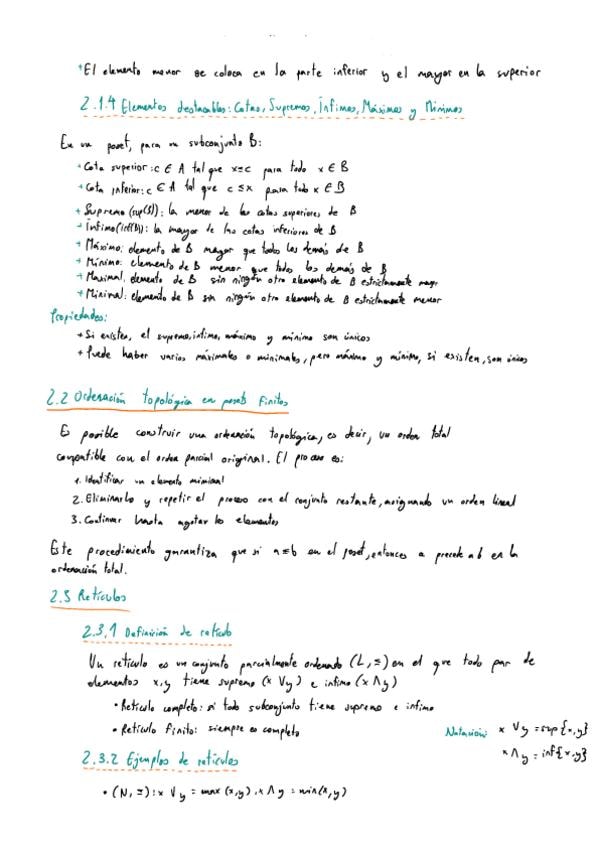 +El elemento menor se coloca en la parte inferior y el mayor en la superior
2.1.4 Elementos destacables: Cotas, Supremos, Ínfimos, Máximos y Mínimos
En un poset, para un subconjunto B:
+ Cota superior: c ∈ A tal que x≤c para todo x ∈ B
+ Cota inferior: c ∈ A tal que c ≤ x para todo x ∈ B
+ Supremo (sup(B)): la menor de las cotas superiores de B
+ Ínfimo (inf(B)): la mayor de las cotas inferiores de B
+ Máximo: elemento de B mayor que todos los demás de B
+ Mínimo: elemento de B menor que todos los demás de B
+ Maximal: elemento de B sin ningún otro elemento de B estrictamente mayor
+ Minimal: elemento de B sin ningún otro elemento de B estrictamente menor
Propiedades:
+ Si existen, el supremo, ínfimo, máximo y mínimo son únicos
+ Puede haber varios máximales o minimales, pero máximo y mínimo, si existen, son únicos
2.2 Ordenación topológica en posets finitos
Es posible construir una ordenación topológica, es decir, un orden total
compatible con el orden parcial original. El proceso es:
1. Identificar un elemento minimal
2. Eliminarlo y repetir el proceso con el conjunto restante, asignando un orden lineal
3. Continuar hasta agotar los elementos
Este procedimiento garantiza que si a≤b en el poset, entonces a precede a b en la
ordenación total.
2.3 Retículos
2.3.1 Definición de retículo
Un retículo es un conjunto parcialmente ordenado (L, ≤) en el que todo par de
elementos x,y tiene supremo (x ∨ y) e ínfimo (x ∧ y)
• Retículo completo: si todo subconjunto tiene supremo e ínfimo
• Retículo finito: siempre es completo
Notación: x ∨ y = sup{x,y}
x ∧ y = inf{x,y}
2.3.2 Ejemplos de retículos
• (N, ≤): x ∨ y = max(x,y), x ∧ y = min(x,y)